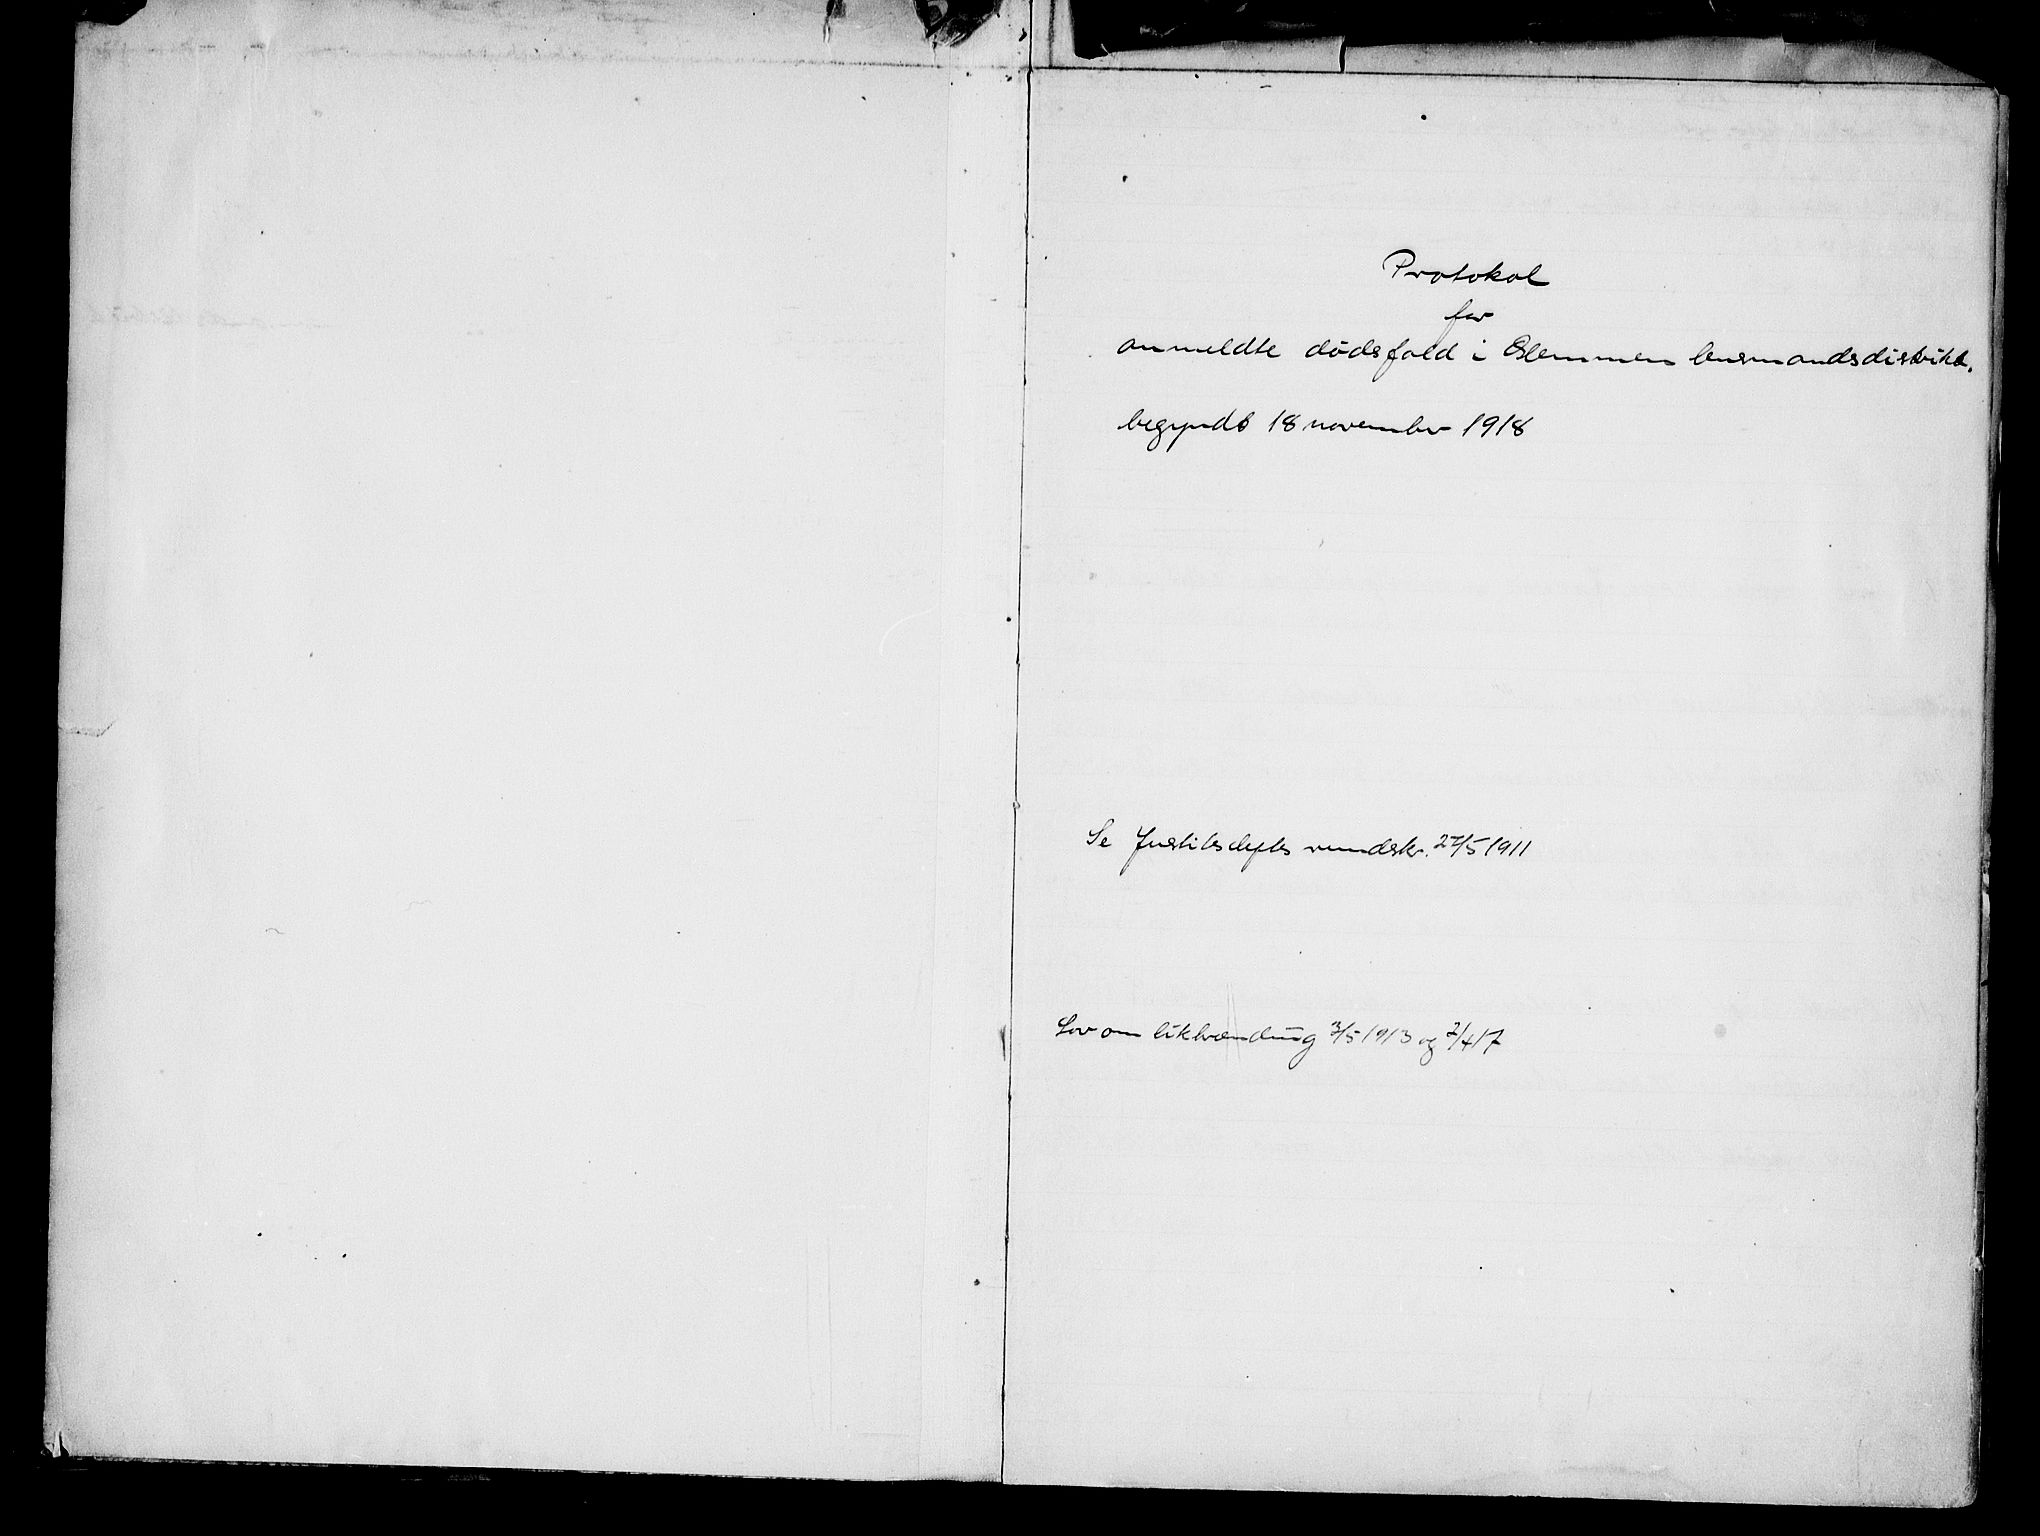 Protokol
for
anmeldte dødsfald i Glemmen lensmandsdistrikt.
begyndt 18 november 1918
Se Justitsdepts rundskr. 27/5 1911
Lov om likbrænding 3/5 1913 og 2/4 17